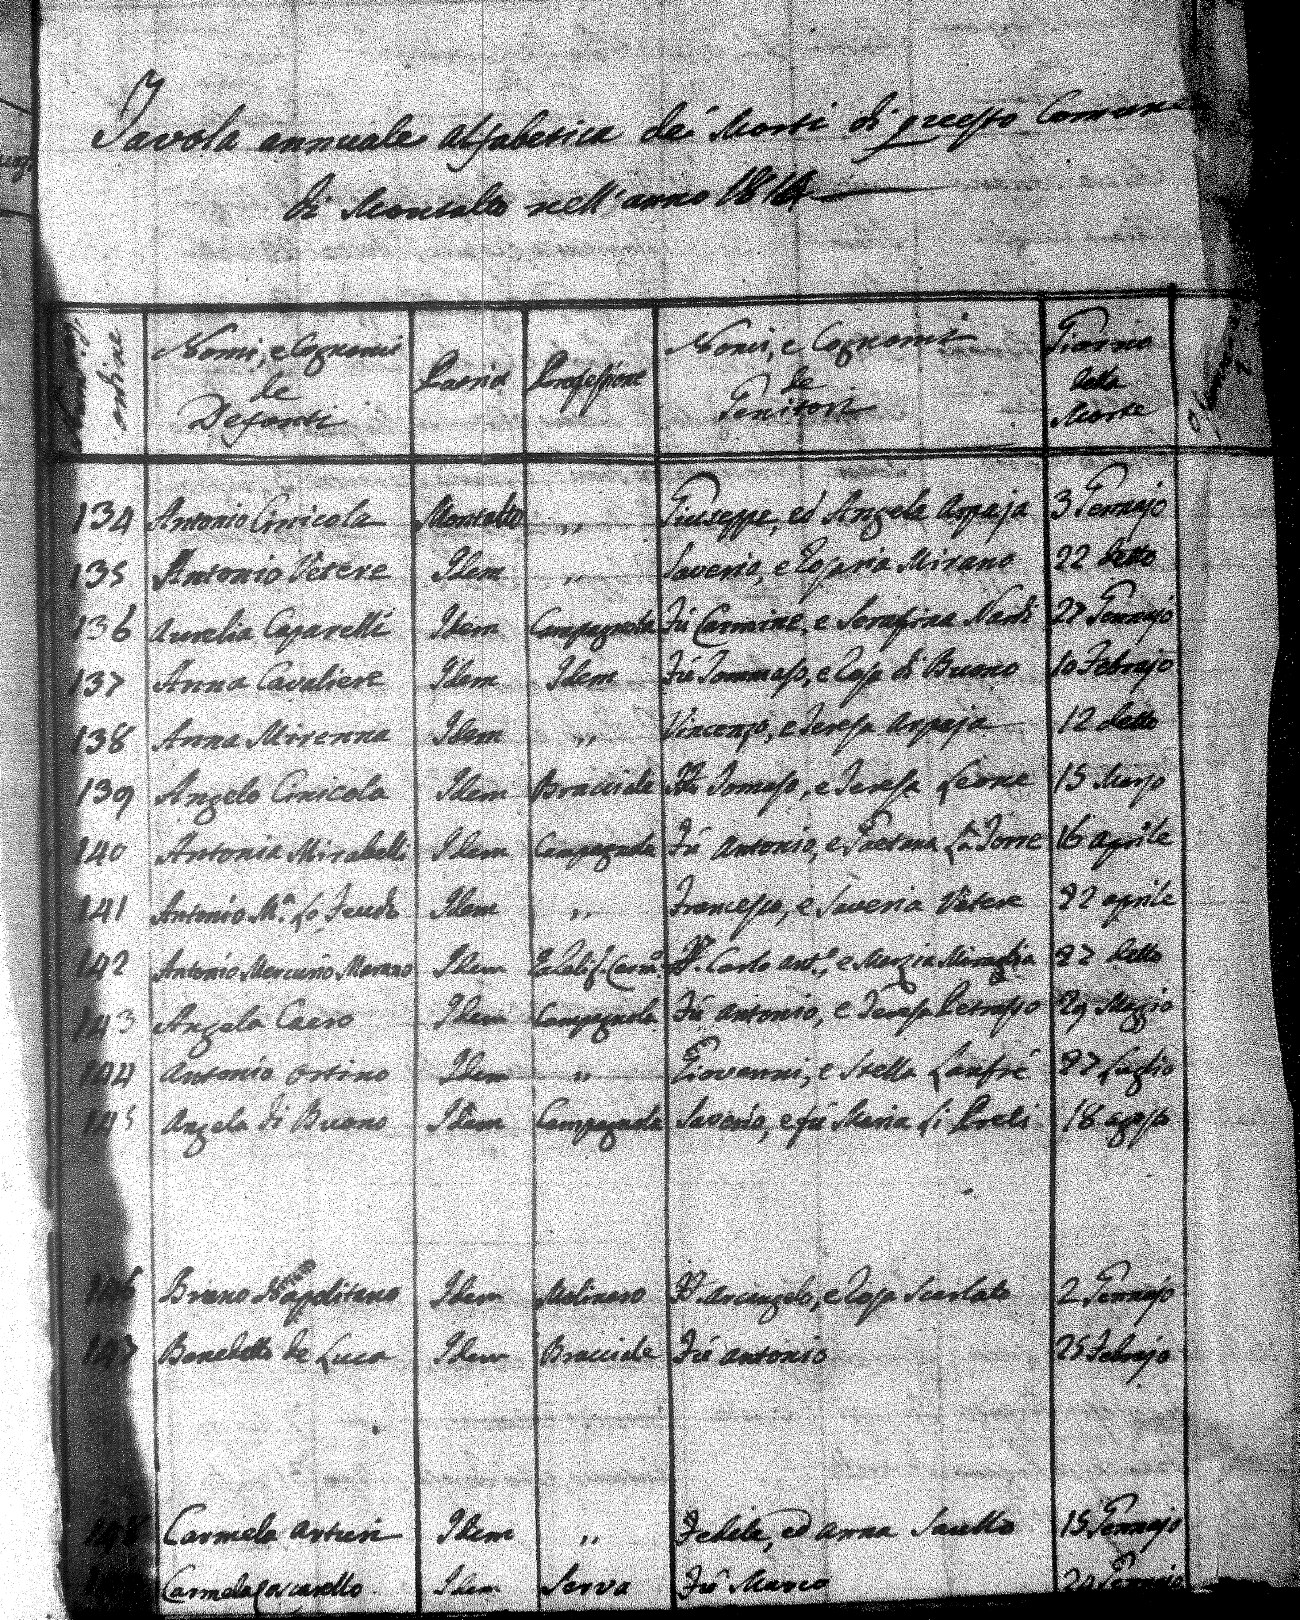 Tavola annuale alfabetica de' Morti di questo Comune
di Montalto nell'anno 1814
ordine Nomi, e Cognomi de Defonti Patria Professione Nomi, e Cognomi de Genitori Giorno della Morte
134 Antonio Cinicola Montalto " Giuseppe, ed Angela Arpaja 3 Gennajo
135 Antonio Vetere Idem " Saverio, e Rosaria Mirano 22 detto
136 Aurelia Caparelli Idem Campagnola Fù Carmine, e Serafina Nardi 27 Gennajo
137 Anna Cavaliere Idem Idem Fù Tommaso, e Rosa di Buono 10 Febrajo
138 Anna Mirenna Idem " Vincenzo, e Teresa Arpaja 12 detto
139 Angelo Cinicola Idem Bracciale Tomaso, e Teresa Leone 15 Marzo
140 Antonia Mirabelli Idem Campagnola Fù Antonio, e Gaetana La Torre 16 aprile
141 Antonio M.ª Lo Feudo Idem " Francesco, e Saveria Vetere 22 aprile
142 Antonio Mercurio Morano Idem Carlo Ant.º, e Marzia Miraglia 27 detto
143 Angela Caero Idem Campagnola Fù Antonio, e Teresa Petrasso 29 Maggio
144 Antonio Ortino Idem " Giovanni, e Stella Lanfrè 27 Luglio
145 Angela di Buono Idem Campagnola Saverio, e fù Maria Li Preti 18 agosto
146 Bruno Napolitano Idem Molinaro Arcangelo, e Rosa Scarlato 2 Gennajo
147 Benedetto de Luca Idem Bracciale Fù Antonio 25 Febrajo
148 Carmela Arturi Idem " Fedele, ed Anna Sautto 15 Gennajo
Carmela Coscarello Idem Serva Fù Marco 20 Gennajo